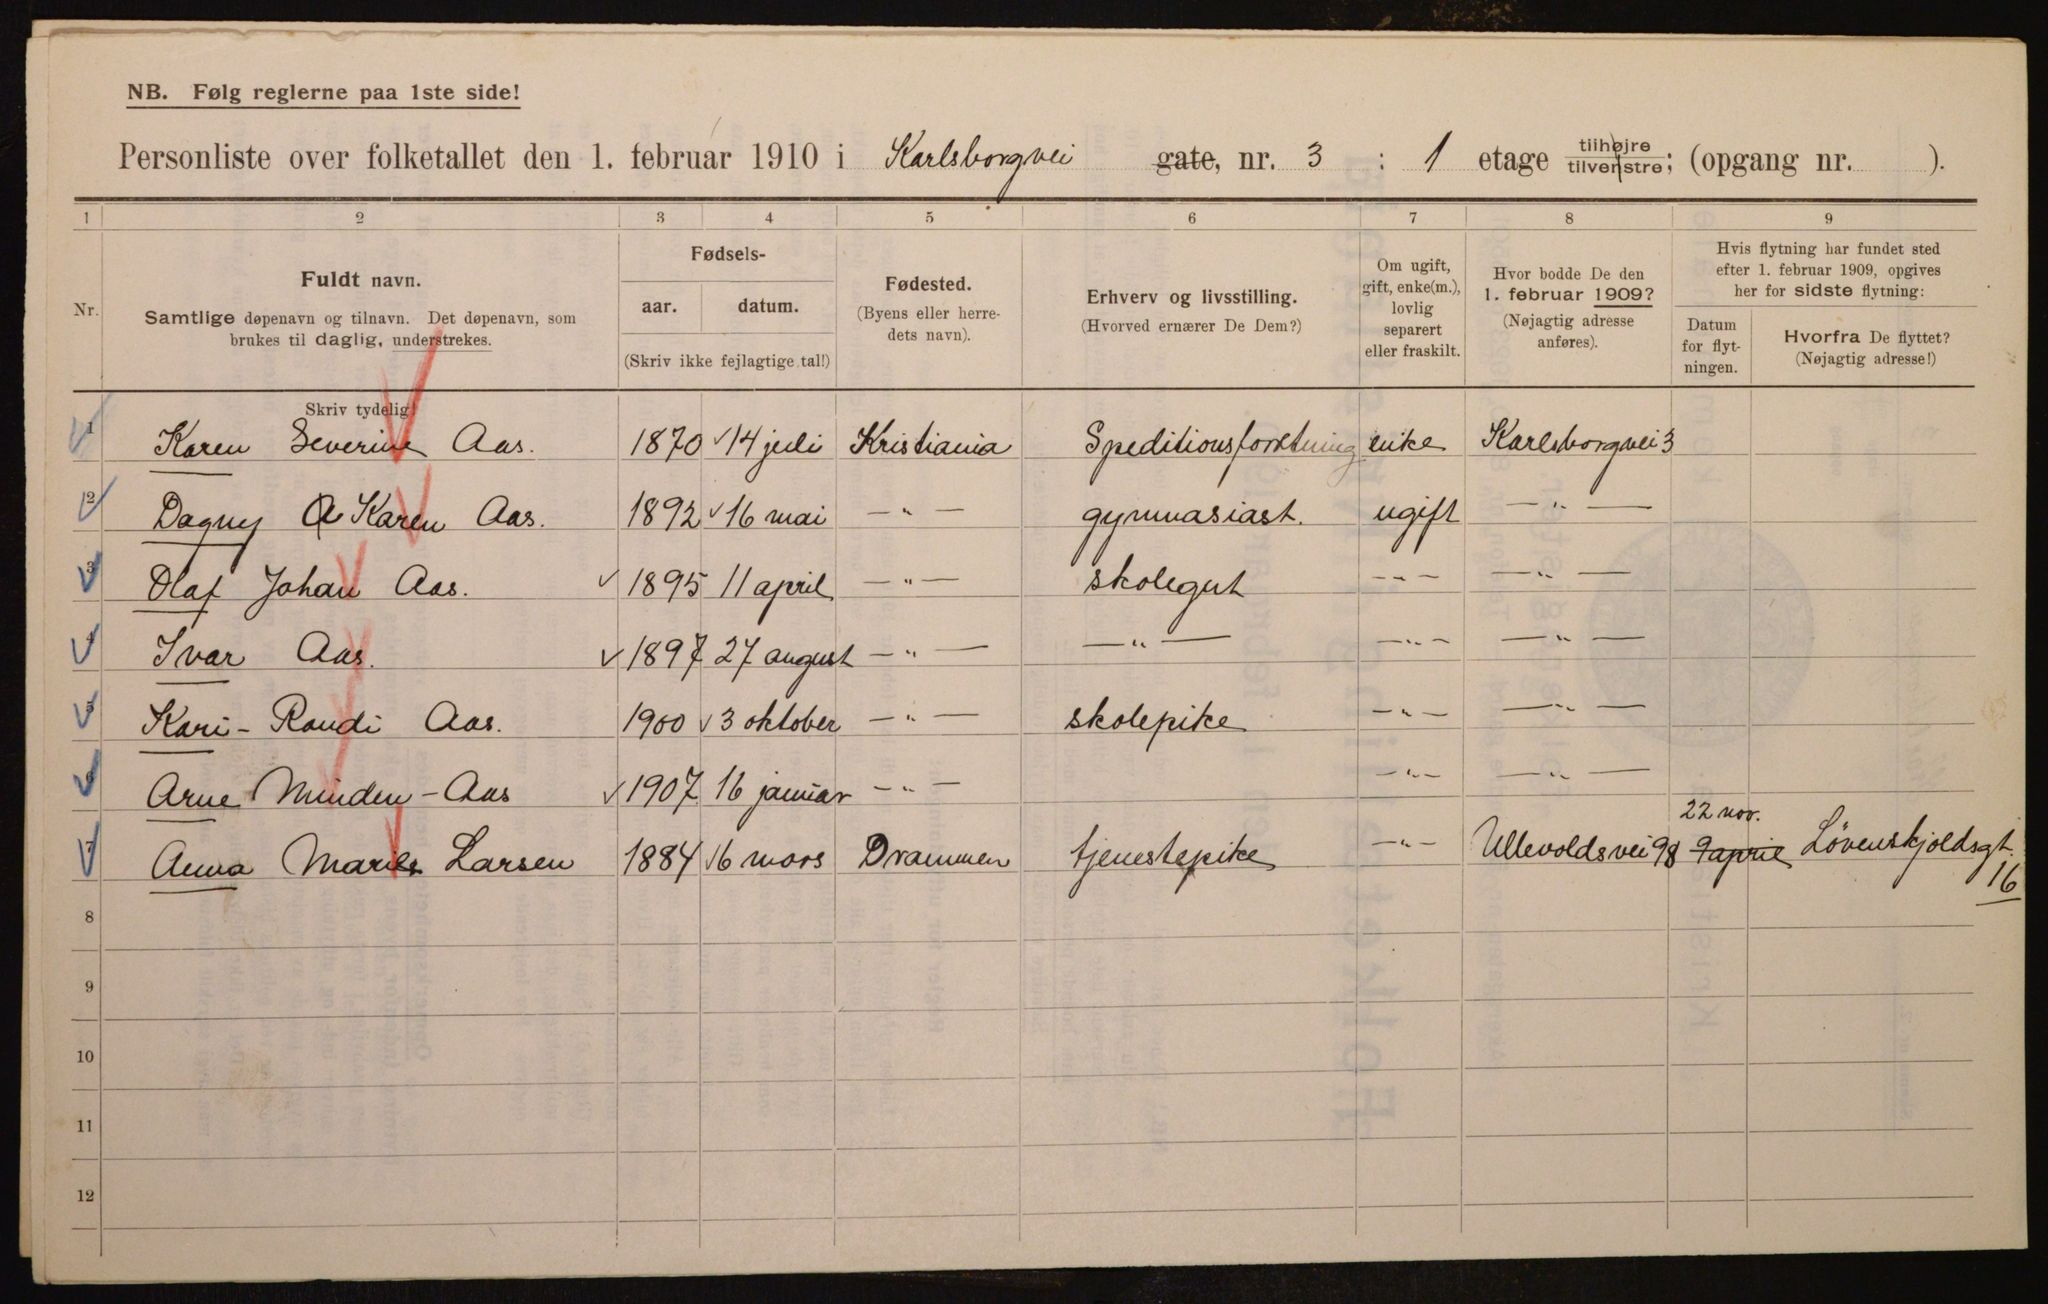 NB. Følg reglerne paa 1ste side!
Personliste over folketallet den 1. februar 1910 i Karlsborgvei gate, nr. 3 : 1 etage tilhøjre tilvenstre; (opgang nr. ).
1 2 3 4 5 6 7 8 9
Nr.
Fuldt navn.
Samtlige døpenavn og tilnavn. Det døpenavn, som
brukes til daglig, understrekes.
Skriv tydelig!
Fødsels-
aar. datum.
(Skriv ikke fejlagtige tal!)
Fødested.
(Byens eller herre-
dets navn).
Erhverv og livsstilling.
(Hvorved ernærer De Dem?)
Om ugift,
gift, enke(m.),
lovlig
separert
eller fraskilt.
Hvor bodde De den
1. februar 1909?
(Nøjagtig adresse
anføres).
Hvis flytning har fundet sted
efter 1. februar 1909, opgives
her for sidste flytning:
Datum
for flyt-
ningen.
Hvorfra De flyttet?
(Nøjagtig adresse!)
1 Karen Severine Aas. 1870 14 juli Kristiania Speditionsforretning enke Karlsborgvei 3
2 Dagny Karen Aas. 1892 16 mai — " — gymnasiast. ugift — " —
3 Olaf Johan Aas. 1895 11 april — " — skolegut — " — — " —
4 Ivar Aas. 1897 27 august — " — — " — — " — — " —
5 Kari - Randi Aas. 1900 3 oktober — " — skolepike — " — — " —
6 Arne Minden - Aas 1907 16 januar — " — — " — — " —
22 nov.
7 Anna Larsen 1884 6 mars Drammen tjenestepike — " — Ullevoldsvei 98 9 april Løvenskjoldsgt.
16
8
9
10
11
12